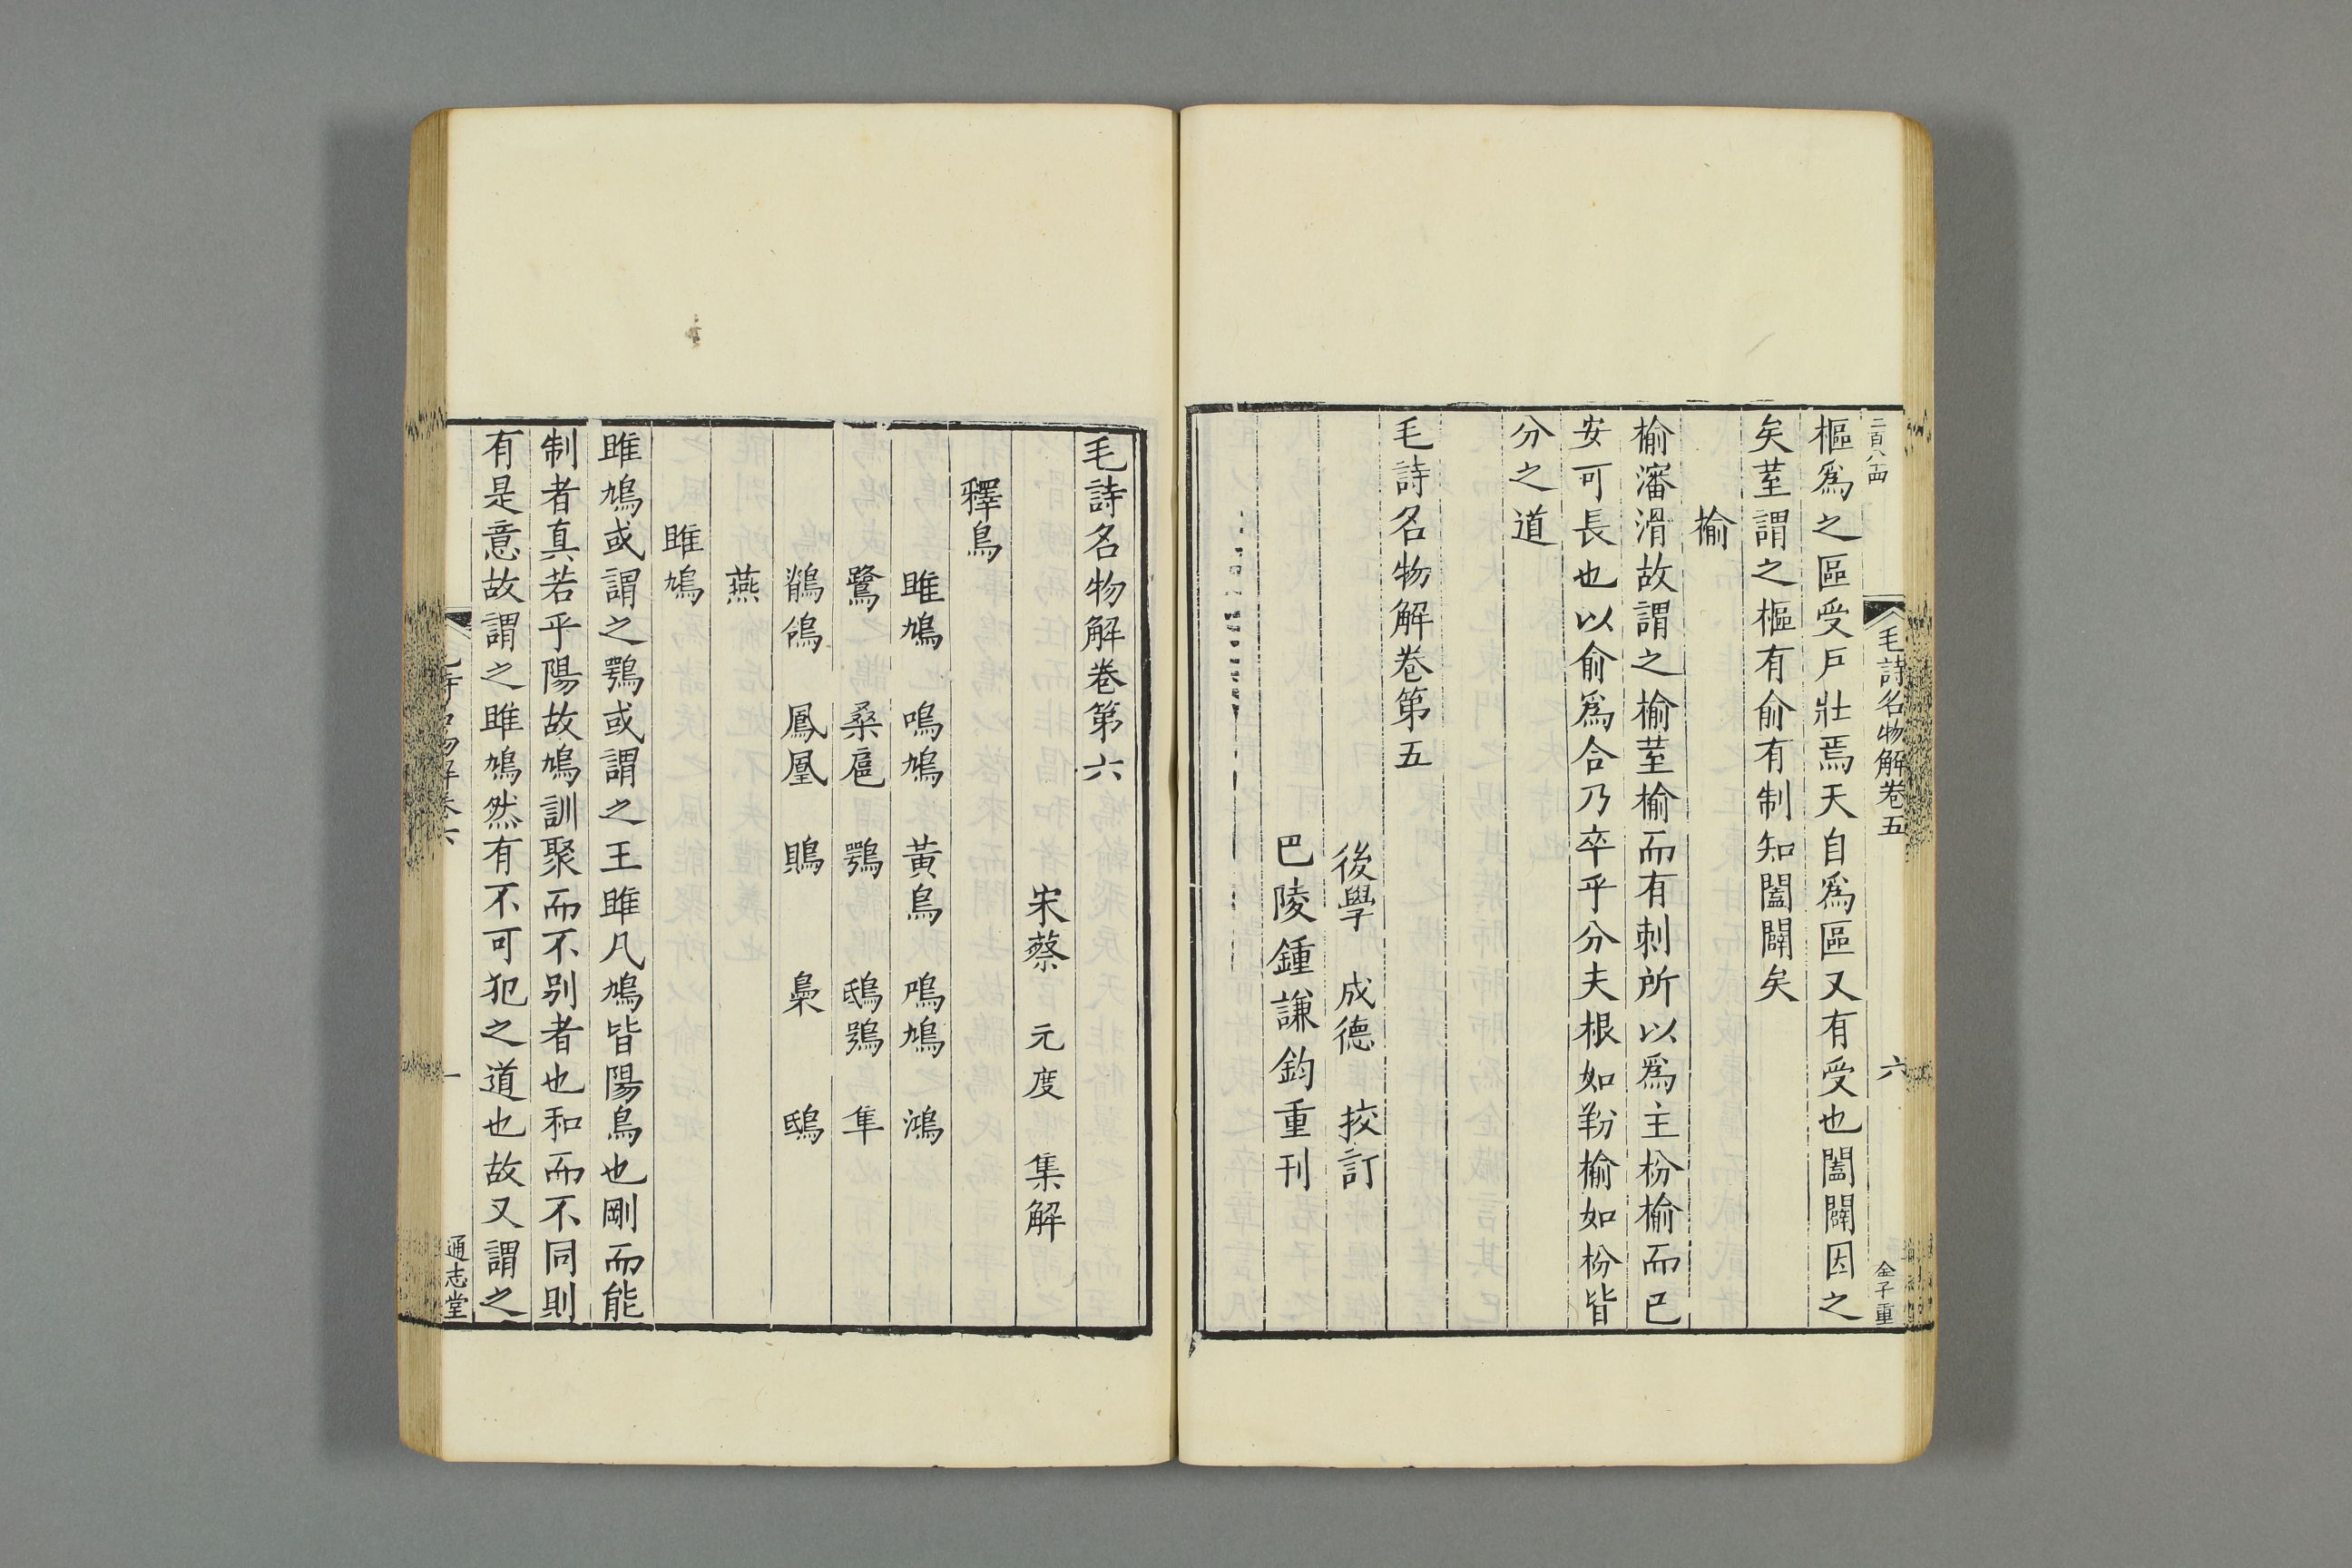 二百八四
毛詩名物解卷五
六
金子重
樞爲之區受戶壯焉天自爲區又有受也闔闢因之
矣荎謂之樞有俞有制知闔闢矣
榆
榆瀋滑故謂之榆荎榆而有刺所以爲主枌榆而已
安可長也以俞爲合乃卒乎分夫根如粉榆如枌皆
分之道
毛詩名物解卷第五
後學 成德 挍訂
巴陵鍾謙鈞重刊
毛詩名物解卷第六
宋蔡 元度 集解
釋鳥
雎鳩 鳴鳩 黃鳥 鳲鳩 鴻
鷺 桑扈 鶚 鴟鴞 隼
鶺鴒 鳳凰 鵙 梟 鴟
燕
雎鳩
雎鳩或謂之鶚或謂之王雎凡鳩皆陽鳥也剛而能
制者真若乎陽故鳩訓聚而不別者也和而不同則
有是意故謂之雎鳩然有不可犯之道也故又謂之
一
通志堂